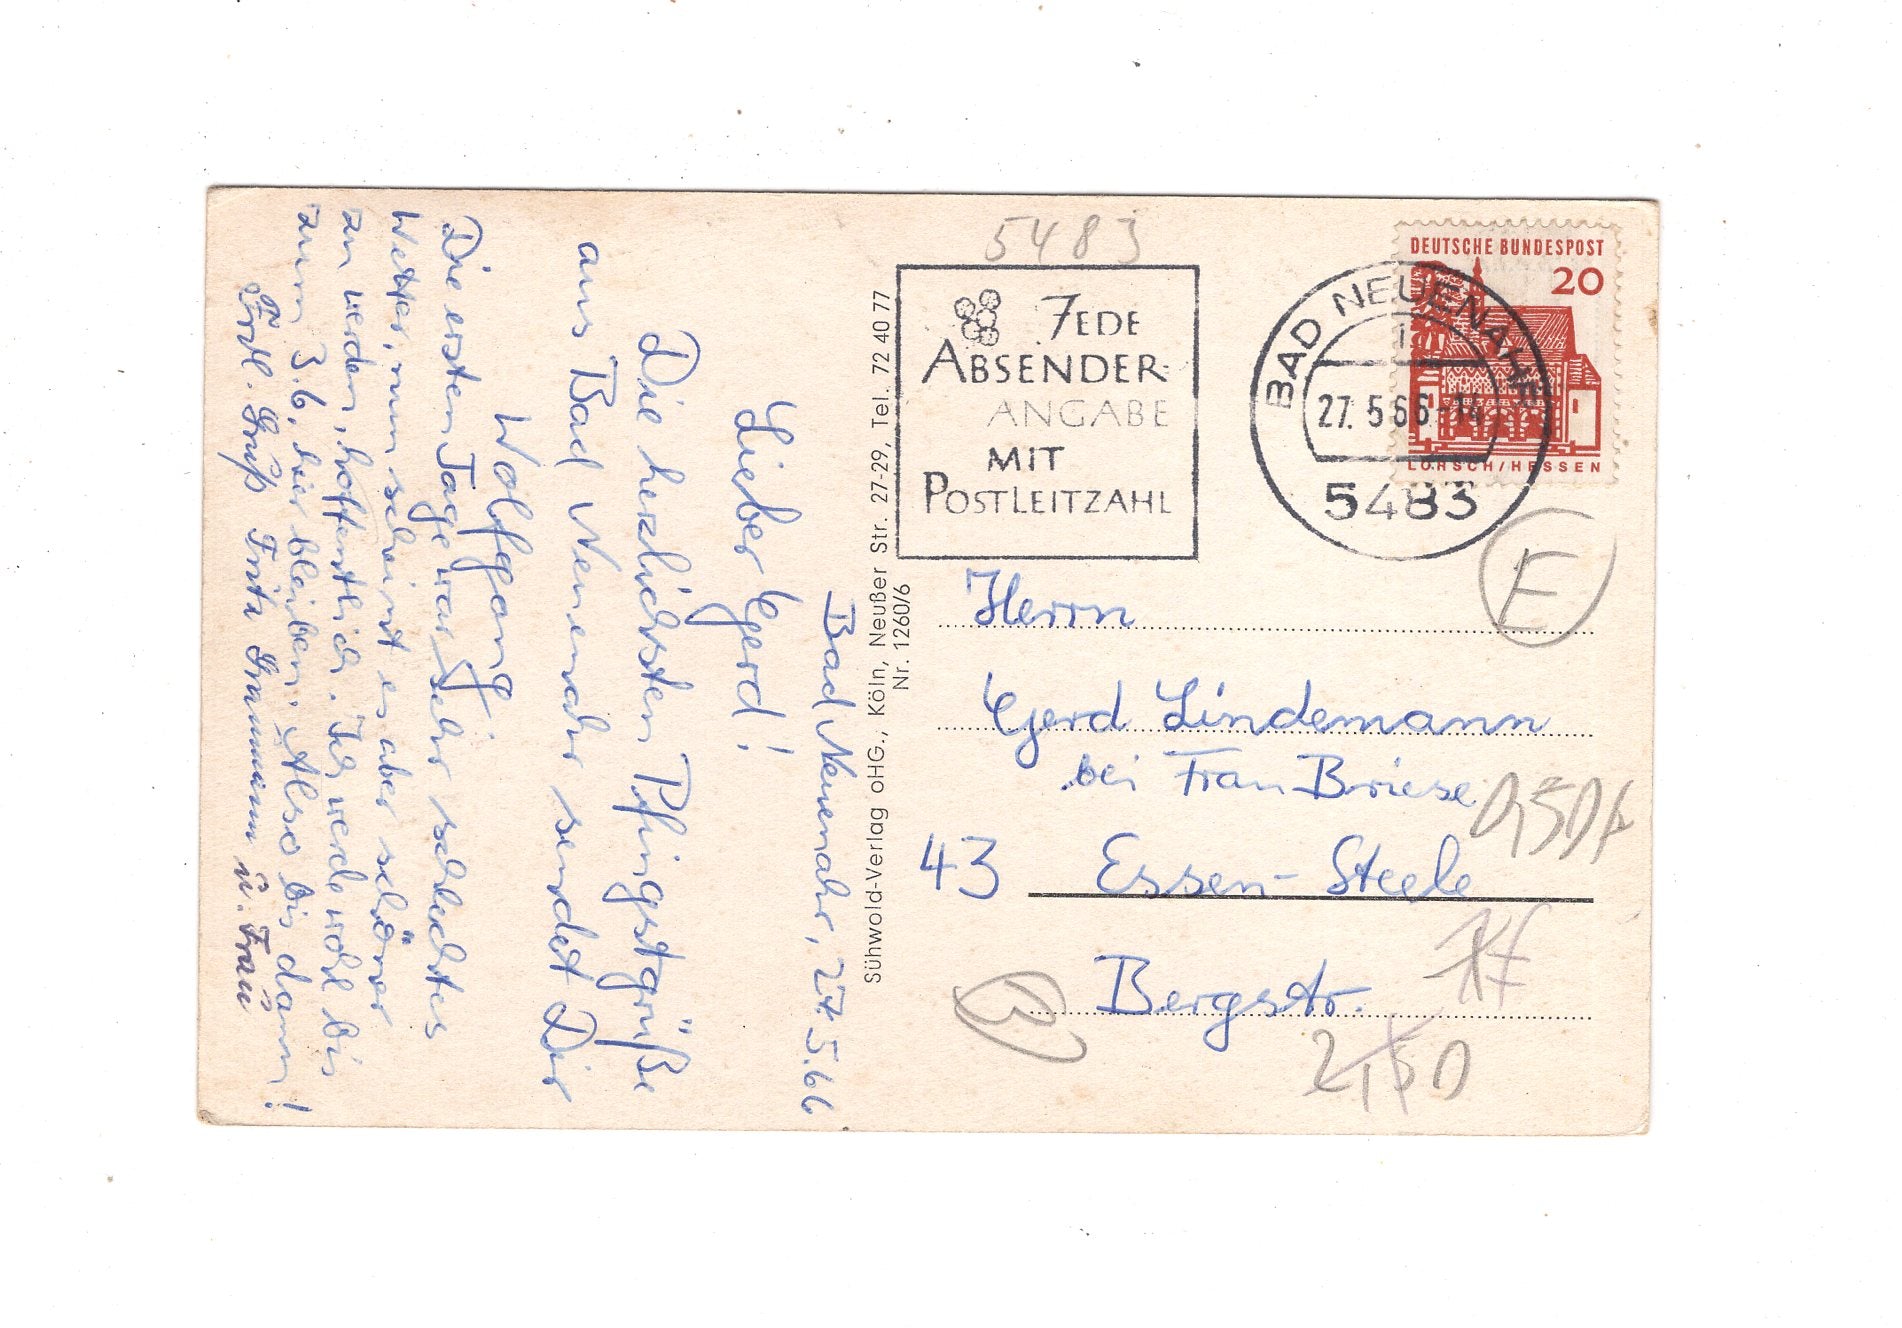 Bad Neuenahr, 27.5.66
Lieber Gerd!
Die herzlichsten Pfingstgrüße
aus Bad Neuenahr sendet Dir
Wolfgang.
Die ersten Tage war sehr schlechtes
Wetter, nun scheint es aber schöner
zu werden, hoffentlich. Ich werde wohl bis
zum 3.6. hier bleiben. Also bis dann!
Frdl. Gruß Fritz u. Frau
Sühwold-Verlag oHG., Köln, Neußer Str. 27-29, Tel. 72 40 77
Nr. 1260/6
5483
JEDE
ABSENDER-
ANGABE
MIT
POSTLEITZAHL
BAD NEUENAHR
i
27.5.66-14
5483
DEUTSCHE BUNDESPOST
20
LORSCH/HESSEN
E
Herrn
Gerd Lindemann
bei Frau Briese
0,50
43 Essen-Steele
Bergstr.
2,50